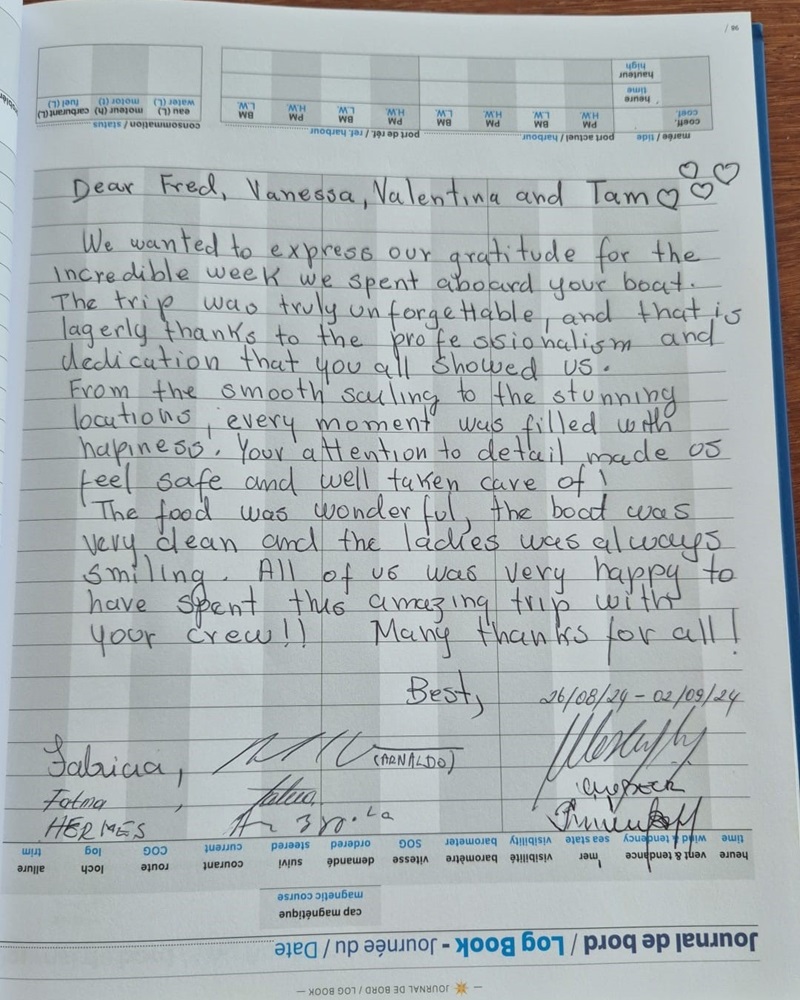 Dear Fred, Vanessa, Valentina and Tam
We wanted to express our gratitude for the
incredible week we spent aboard your boat.
The trip was truly unforgettable, and that is
lagerly thanks to the professionalism and
dedication that you all showed us.
From the smooth sailing to the stunning
locations, every moment was filled with
hapiness. Your attention to detail made us
feel safe and well taken care of!
The food was wonderful, the boat was
very clean and the ladies was always
smiling. All of us was very happy to
have spent this amazing trip with
your crew!! Many thanks for all!
Best, 26/08/24 - 02/09/24
Fabricia, (ARNALDO)
Fatma,
HERMES
heure vent & tendance mer visibilité baromètre vitesse demandé suivi courant route loch allure
time wind & tendency sea state visibility barometer SOG ordered steered current COG log trim
cap magnétique
magnetic course
Journal de bord / Log Book - Journée du / Date
JOURNAL DE BORD / LOG BOOK
marée / tide port actuel / harbour port de réf. / ref. harbour consommation / status
coeff. PM BM PM BM PM BM PM BM eau (L) moteur (h) carburant (L)
coef. H.W L.W H.W L.W H.W L.W H.W L.W water (L) motor (l) fuel (L)
heure
time
hauteur
high